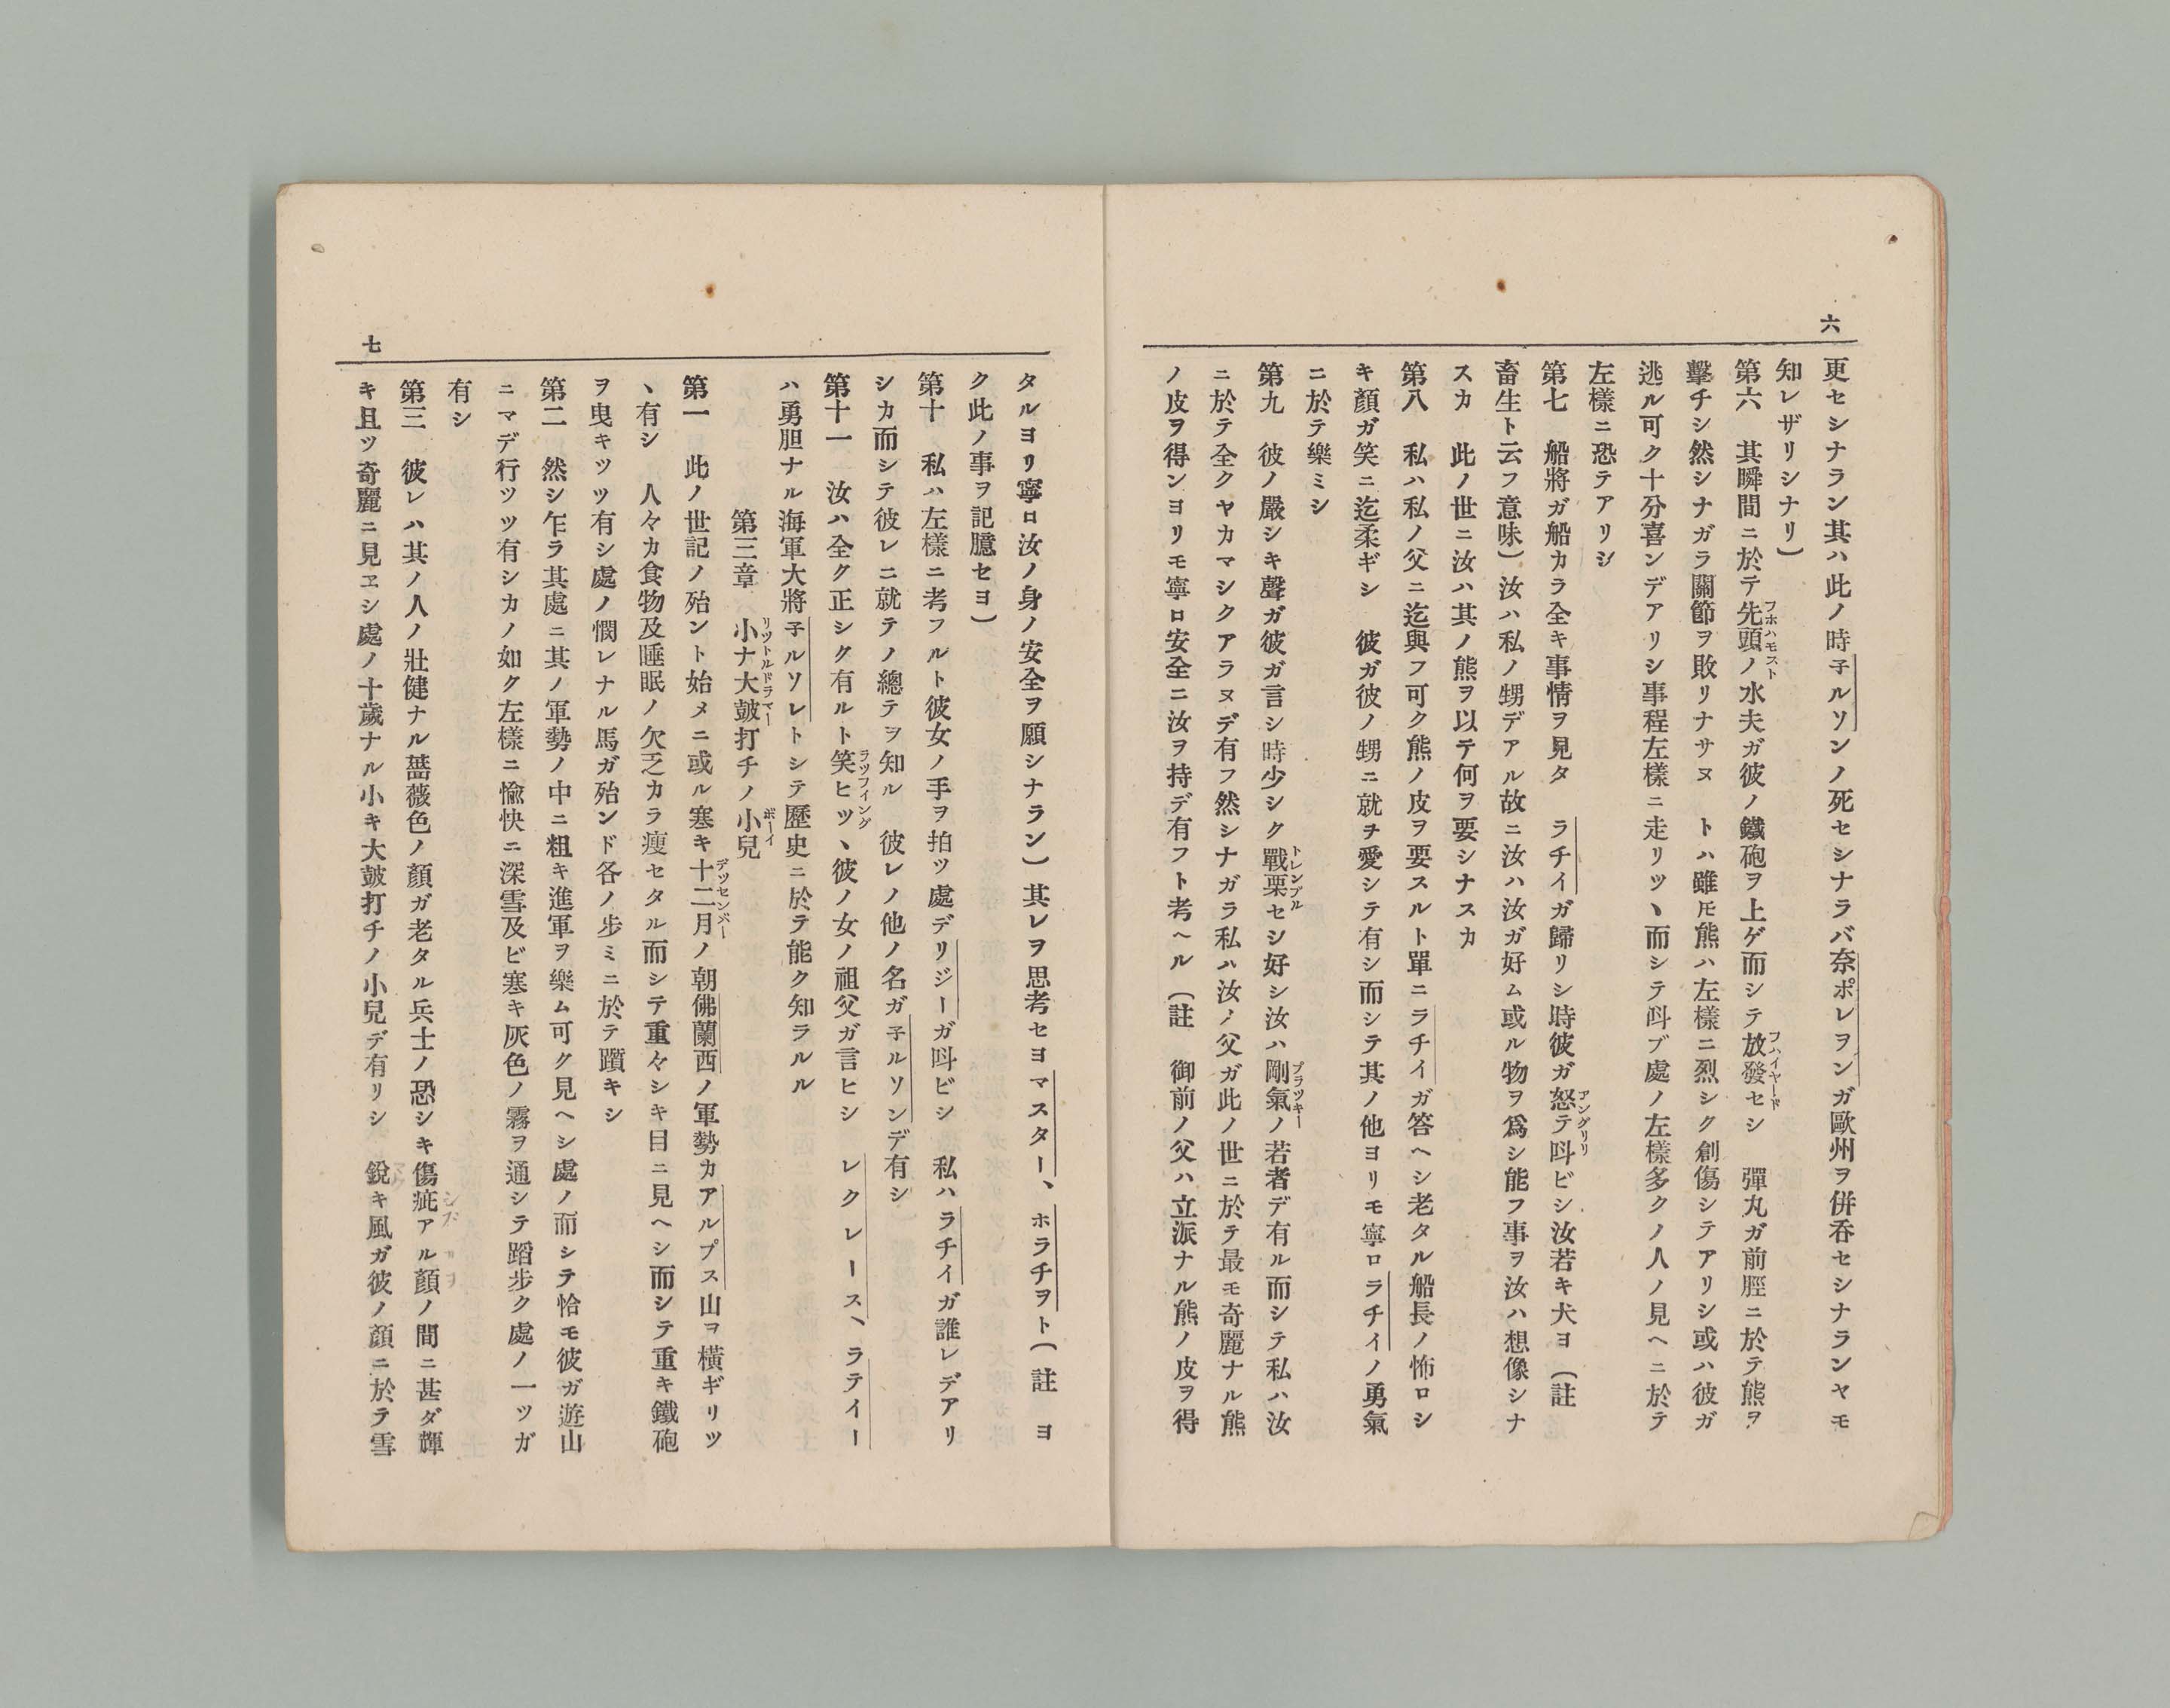 六
更セシナラン其ハ此ノ時子ルソンノ死セシナラバ奈ポレヲンガ歐州ヲ併呑セシナランヤモ
知レザリシナリ)
第六　其瞬間ニ於テ先頭ノ水夫ガ彼ノ鐵砲ヲ上ゲ而シテ放發セシ　彈丸ガ前脛ニ於テ熊ヲ
フホハモスト
フハイヤード
擊チシ然シナガラ關節ヲ敗リナサヌ　トハ雖𪜈熊ハ左樣ニ烈シク創傷シテアリシ或ハ彼ガ
逃ル可ク十分喜ンデアリシ事程左樣ニ走リツヽ而シテ呌ブ處ノ左樣多クノ人ノ見ヘニ於テ
左樣ニ恐テアリシ
第七　船將ガ船カラ全キ事情ヲ見タ　ラチイガ歸リシ時彼ガ怒テ呌ビシ汝若キ犬ヨ（註
アングリリ
畜生ト云フ意味）汝ハ私ノ甥デアル故ニ汝ハ汝ガ好ム或ル物ヲ爲シ能フ事ヲ汝ハ想像シナ
スカ　此ノ世ニ汝ハ其ノ熊ヲ以テ何ヲ要シナスカ
第八　私ハ私ノ父ニ迄與フ可ク熊ノ皮ヲ要スルト單ニラチイガ答ヘシ老タル船長ノ怖ロシ
キ顏ガ笑ニ迄柔ギシ　彼ガ彼ノ甥ニ就チ愛シテ有シ而シテ其ノ他ヨリモ寧ロラチイノ勇氣
ニ於テ樂ミシ
第九　彼ノ嚴シキ聲ガ彼ガ言シ時少シク戰栗セシ好シ汝ハ剛氣ノ若者デ有ル而シテ私ハ汝
トレンブル
プラツキー
ニ於テ全クヤカマシクアラヌデ有フ然シナガラ私ハ汝ノ父ガ此ノ世ニ於テ最モ奇麗ナル熊
ノ皮ヲ得ンヨリモ寧ロ安全ニ汝ヲ持デ有フト考ヘル（註　御前ノ父ハ立派ナル熊ノ皮ヲ得
七
タルヨリ寧ロ汝ノ身ノ安全ヲ願シナラン）其レヲ思考セヨマスター、ホラチヲト（註　ヨ
ク此ノ事ヲ記臆セヨ）
第十　私ハ左樣ニ考フルト彼女ノ手ヲ拍ツ處デリジーガ呌ビシ　私ハラチイガ誰レデアリ
シカ而シテ彼レニ就テノ總テヲ知ル　彼レノ他ノ名ガ子ルソンデ有シ
第十一　汝ハ全ク正シク有ルト笑ヒツヽ彼ノ女ノ祖父ガ言ヒシ　レクレース、ラテイー
ラツフイング
ハ勇胆ナル海軍大將子ルソレトシテ歷史ニ於テ能ク知ラルル
第三章　小ナ大皷打チノ小兒
リツトルドラマー
ボーイ
第一　此ノ世記ノ殆ント始メニ或ル寒キ十二月ノ朝佛蘭西ノ軍勢カアルプス山ヲ橫ギリツ
デツセンバー
ヽ有シ　人々カ食物及睡眠ノ欠乏カラ瘦セタル而シテ重々シキ目ニ見ヘシ而シテ重キ鐵砲
ヲ曳キツツ有シ處ノ憫レナル馬ガ殆ンド各ノ步ミニ於テ躓キシ
第二　然シ乍ラ其處ニ其ノ軍勢ノ中ニ粗キ進軍ヲ樂ム可ク見ヘシ處ノ而シテ恰モ彼ガ遊山
ニマデ行ツツ有シカノ如ク左樣ニ愉快ニ深雪及ビ寒キ灰色ノ霧ヲ通シテ蹈步ク處ノ一ツガ
有シ
第三　彼レハ其ノ人ノ壯健ナル薔薇色ノ顏ガ老タル兵士ノ恐シキ傷疵アル顏ノ間ニ甚ダ輝
キ且ツ奇麗ニ見ヱシ處ノ十歲ナル小キ大皷打チノ小兒デ有リシ　銳キ風ガ彼ノ顏ニ於テ雪